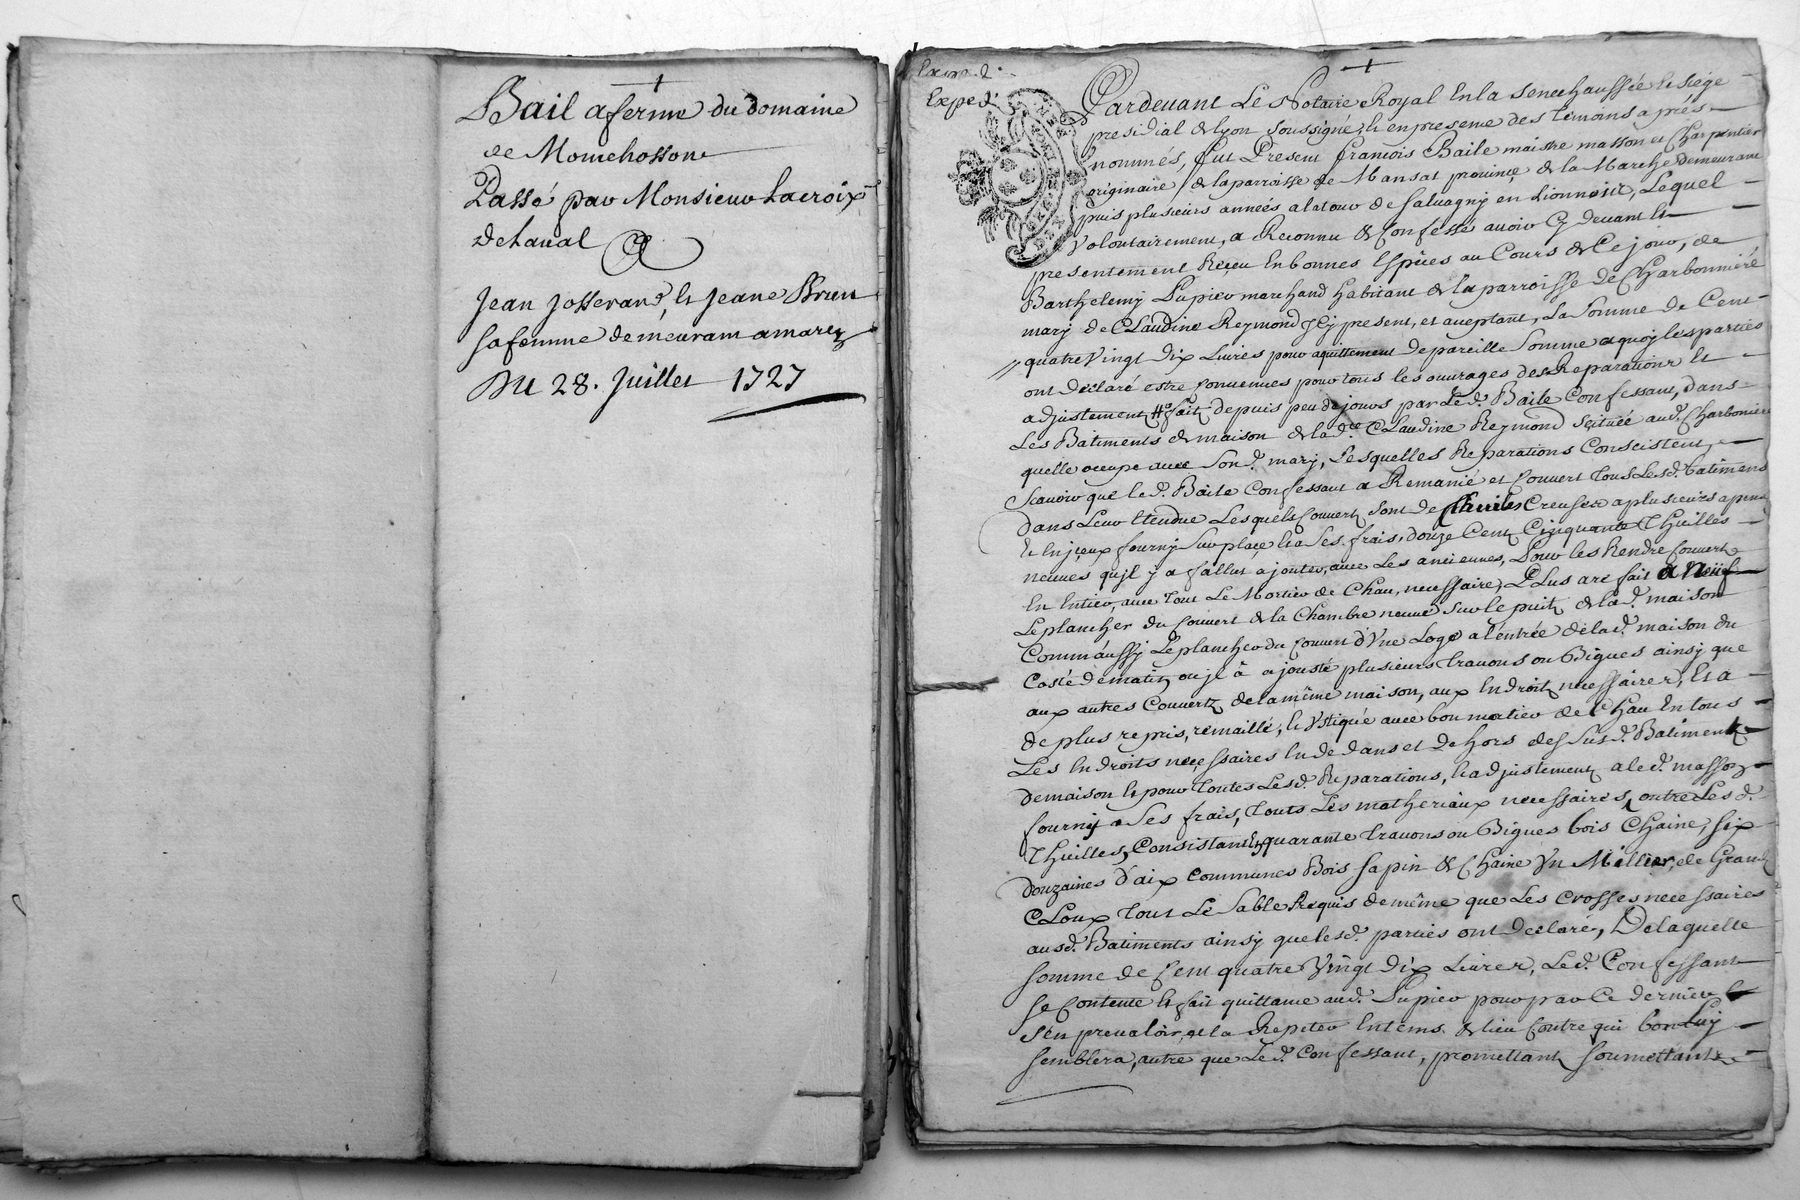 Bail aferme du domaine
de Monchosson
Passé par Monsieur Lacroix
Delaual
Jean Josserand, et Jeane Brun
sa femme demeurant a marcy
Du 28. Juillet 1727
Exped.
Pardeuant Le Notaire Royal En la Senechaussée et Siege
presidial de lyon soussigné, et en presence des temoins aprés
nommés, fut Present francois Baile maistre masson et Charpentier
originaire de la parroisse de Mansat prouince de la Marche demeurant
puis plusieurs années a la tour de Saluagny en Lionnois, Lequel
Volontairement, a Reconnu et Confessé auoir Cy deuant et
presentement Receu En bonnes Espèces au Cours de Ce jour, de
Barthelemy Pupier marchand habitant de la parroisse de Charbonniere
mary de Claudine Reymond Jcy present, et aceptant, La Somme de Cent
quatre Vingt dix Liures pour aquittement de pareille Somme a quoy les parties
ont declaré estre Conuenues pour tous les ouurages des Reparations et
adjustement faitz depuis peu de jours par Le d. Baile Confessant, dans
Les Batiments de maison de la d.e Claudine Reymond Scituée aud. Charboniere
quelle occupe auec Son d. mary, Lesquelles Reparations Conscistent,
Scauoir que le d. Baile Confessant a Remanié et Couuert tous Les d. batimens
dans Leur Etendue Lesquels Couuertz sont de thuiles Creuses a plusieurs apens
Et En jceux fourny Sur place et a Ses frais, douze Cent Cinquante Thuilles
neuues qujl y a fallut ajouter, auec Les anciennes, Pour les Rendre Couuertz
En Entier, auec tout Le Mortier de Chau, necessaire, Plus a refait a Neuf
Le plancher du Couuert de la Chambre neuue sur le puitz de la d. maison
Comm'aussy Le plancher du Couuert d'Vne Loge a l'entrée de la d. maison du
Costé de matin ou jl à ajousté plusieurs trauons ou Bigues ainsy que
aux autres Couuertz de la même maison, aux Endroitz necessaires, Et a
de plus repris, remaillé, et Vstiqué auec bon mortier de Chau En tous
Les Endroits necessaires En dedans et dehors des Sus d. Batimentz
de maison Et pour toutes Les d. Reparations, Et adjustementz a led. masson
fourny a Ses frais, touts Les matheriaux necessaires, outre Les d.
Thuilles, Consistant En quarante trauons ou Bigues bois Chaine, Six
douzaines d'aix Communes Bois Sapin & Chaine Vn Millier, de Grandz
Cloux tout Le Sable Requis de même que Les Crosses necessaires
aus d. Batiments ainsy que les d. parties ont declaré, De laquelle
Somme de Cent quatre Vingt dix Liures, Le d. Confessant
se Contente et fait quittance aud. Pupier pour par Ce dernier
s'en preualoir, et la Repeter En tems & lieu Contre qui bon Luy
semblera, autre que Le d. Confessant, promettant Soumettant